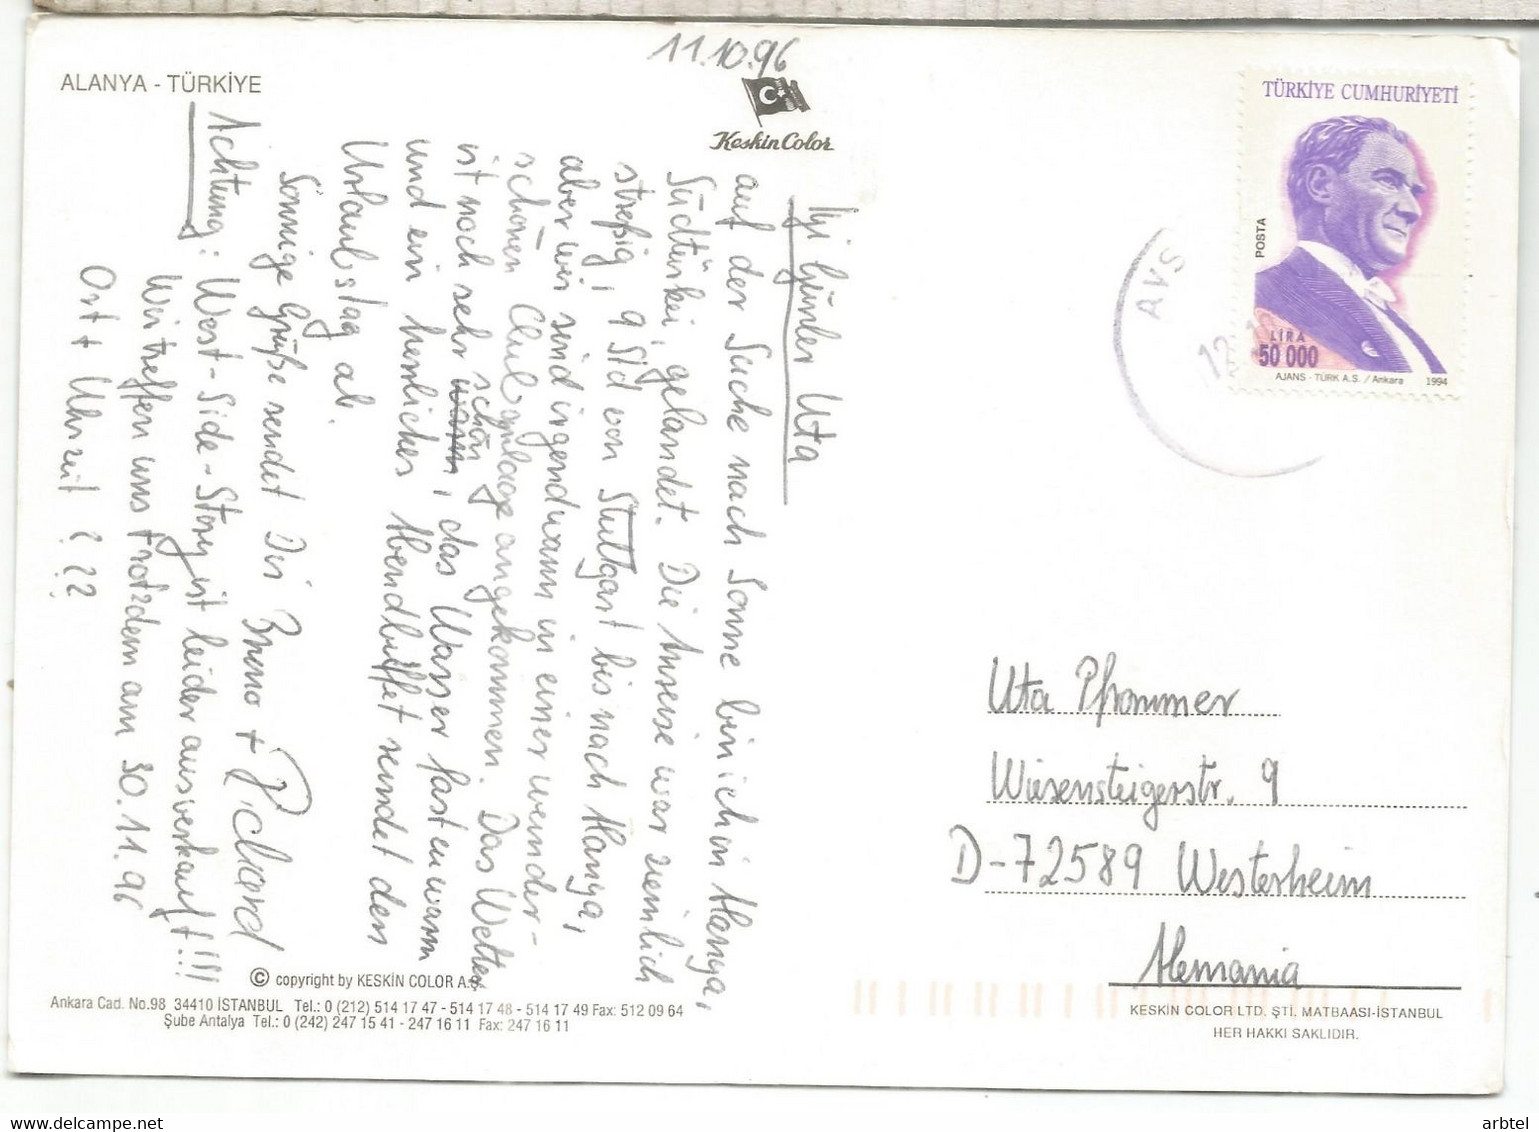 ALANYA - TÜRKİYE
11.10.96
Keskin Color
İyi günler Uta
auf der Suche nach Sonne bin ich in Alanya,
Südtürkei, gelandet. Die Anreise war ziemlich
streßig, 9 Std von Stuttgart bis nach Alanya,
aber wir sind irgendwann in einer wunder-
schönen Clubanlage angekommen. Das Wetter
ist noch sehr schön, das Wasser fast warm
und ein herrliches Abendbuffet rundet den
Urlaubstag ab.
Sonnige Grüße sendet Dir Bruno + Richard
Achtung: West-Side-Story ist leider ausverkauft!!!
Wir treffen uns trotzdem am 30.11.96
Ort + Uhrzeit ???
TÜRKİYE CUMHURİYETİ
POSTA
LİRA
50 000
AJANS - TÜRK A.Ş. / Ankara 1994
AYS
12
Uta Pfrommer
Wiesensteigerstr. 9
D-72589 Westerheim
Alemania
© copyright by KESKİN COLOR A.Ş.
Ankara Cad. No.98 34410 İSTANBUL Tel.: 0 (212) 514 17 47 - 514 17 48 - 514 17 49 Fax: 512 09 64
Şube Antalya Tel.: 0 (242) 247 15 41 - 247 16 11 Fax: 247 16 11
KESKİN COLOR LTD. ŞTİ. MATBAASI-İSTANBUL
HER HAKKI SAKLIDIR.
delcampe.net
arbtel